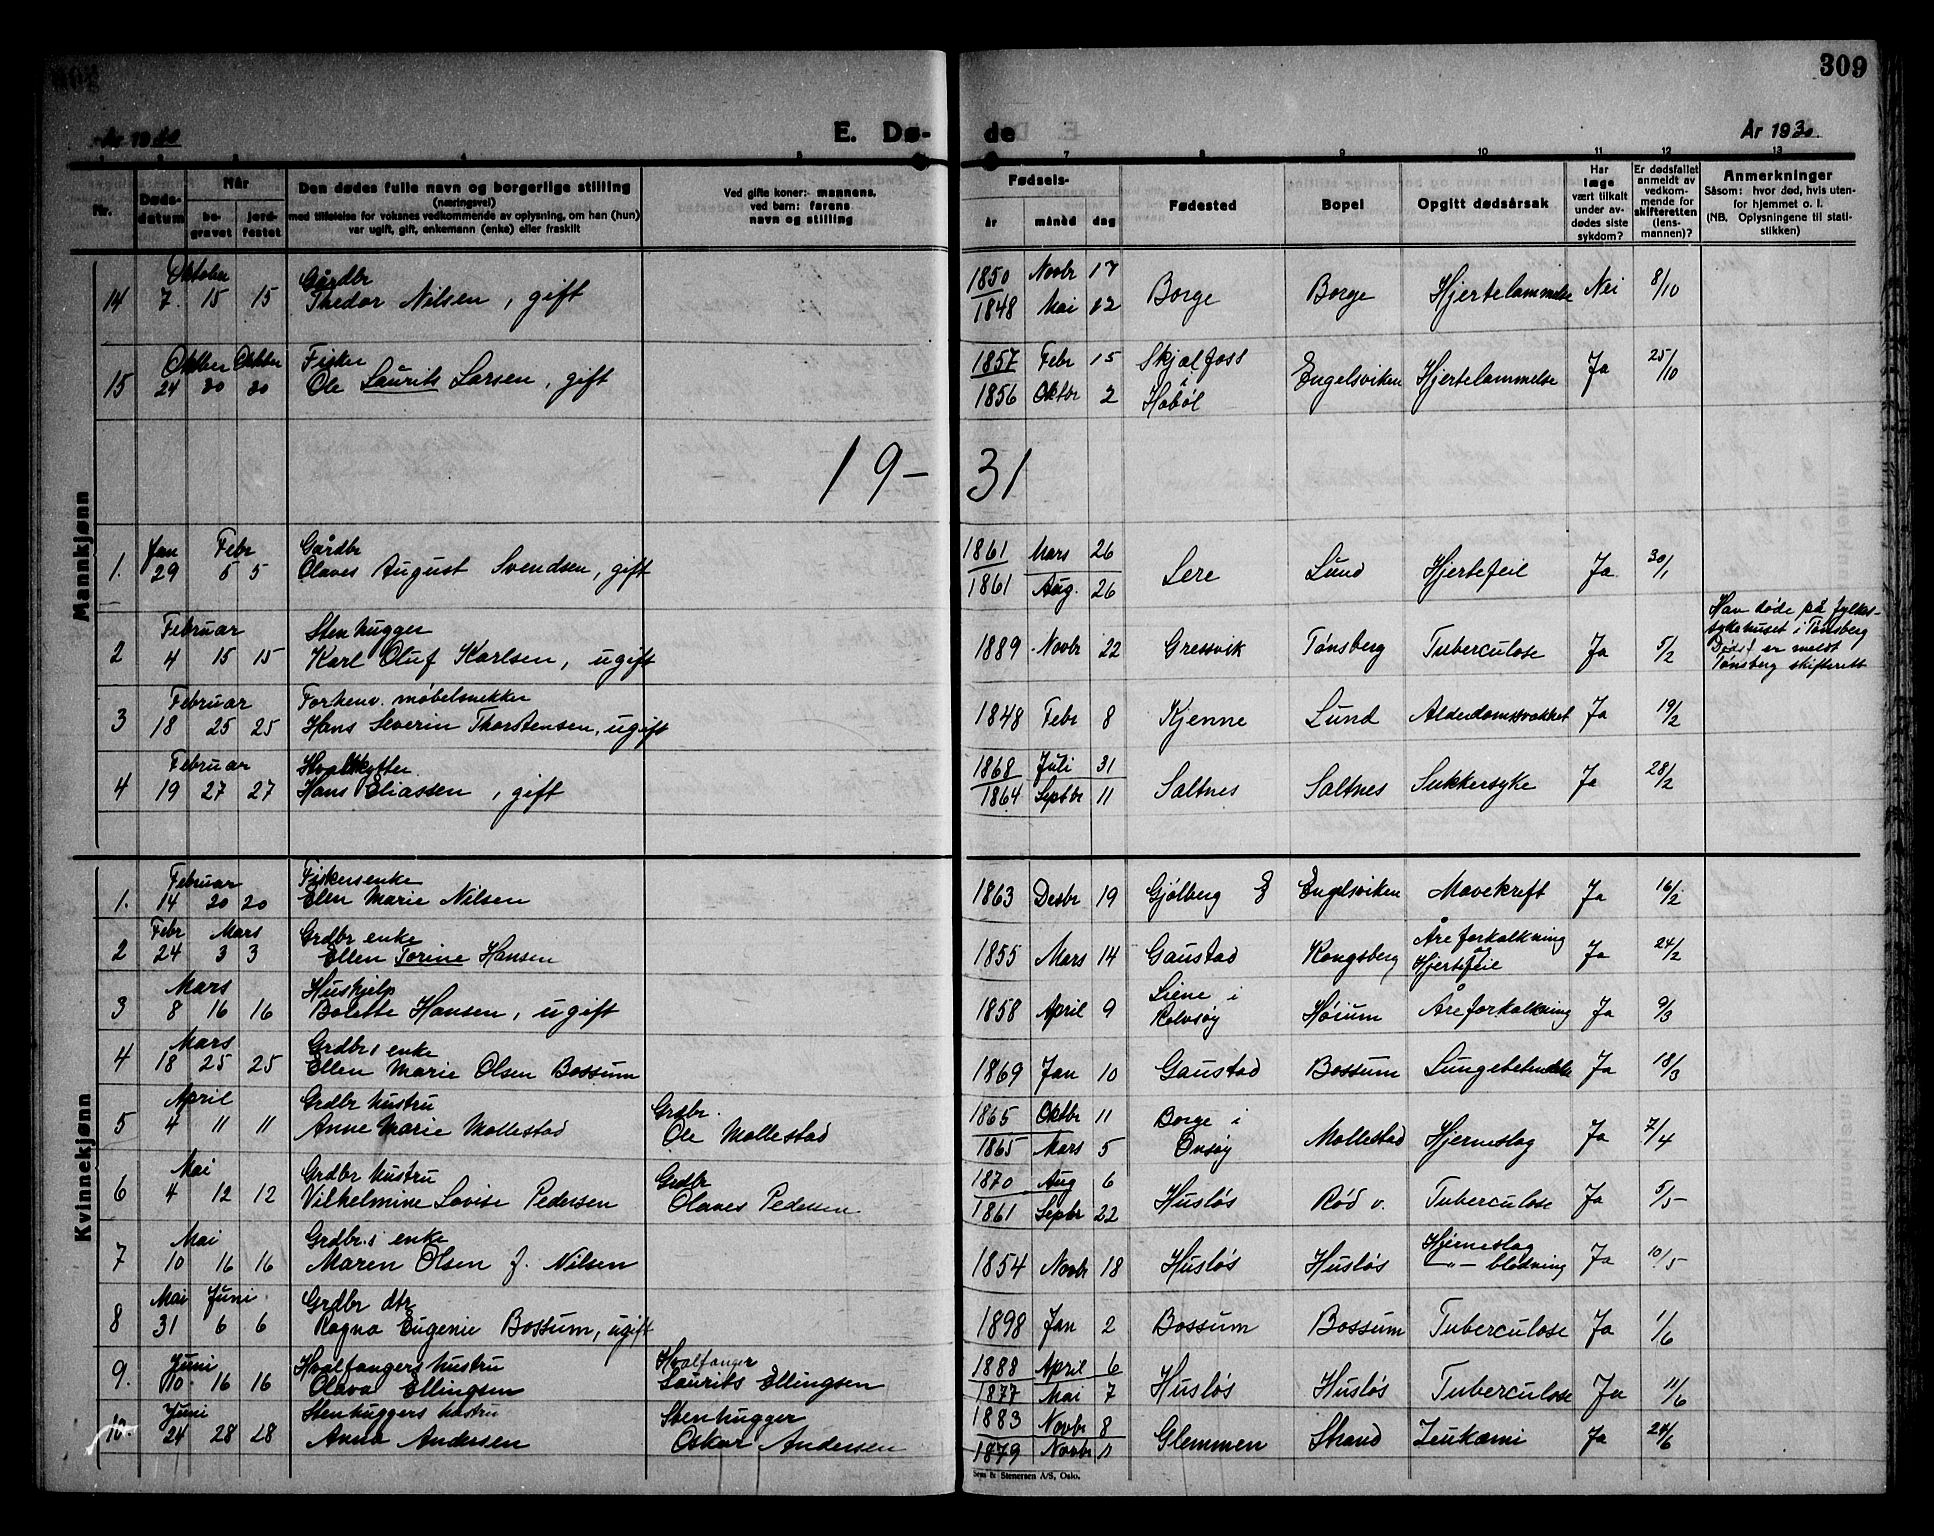 309
År 1930
E. Dø-de
År 1930
7 8 9 10 11 12 13
Nr.
Døds-datum
Når
be-gravet
jord-festet
Den dødes fulle navn og borgerlige stilling
(næringsvei)
med tilføielse for voksnes vedkommende av oplysning, om han (hun)
var ugift, gift, enkemann (enke) eller fraskilt
Ved gifte koner: mannens,
ved barn: farens
navn og stilling
Fødsels-
år
måned
dag
Fødested
Bopel
Opgitt dødsårsak
Har læge vært tilkalt under av-dødes siste sykdom?
Er dødsfallet anmeldt av vedkom-mende for skifteretten (lens-mannen)?
Anmerkninger
Såsom: hvor død, hvis uten-for hjemmet o. l.
(NB. Oplysningene til stati-stikken)
Mannkjønn
Oktober Gårdbr 1850 Novbr 17
14 7. 15 15 Thedor Nilsen, gift 1848 Mai 12 Borge Borge Hjertelammelse Nei 8/10
Oktber Oktber Fisker 1857 Febr 15 Skjælfoss
15 24 30 30 Ole Laurits Larsen, gift 1856 Oktbr 2 i Håbøl Engelsviken Hjertelammelse Ja 25/10
19-31
Jan Febr Gårdbr 1861 Mars 26
1. 29 5 5 Olaves August Svendsen, gift 1861 Aug. 26 Lere Lund Hjertefeil Ja 30/1
Februar Stenhugger
2 4 15 15 Karl Oluf Karlsen, ugift 1889 Novbr 22 Gressvik Tønsberg Tuberculose Ja 5/2
Han døde på fylkes-
sykehuset i Tønsberg
Dødsf er meldt
Tønsberg skifterett
Februar Forhenv. møbelsnekker
3 18 25 25 Hans Severin Thorstensen, ugift 1848 Febr 8 Kjenne Lund Alderdomssvakhet Ja 19/2
Februar Hvalskytter 1868 Juli 31
4 19 27 27 Hans Eliassen, gift 1864 Septbr 11 Saltnes Saltnes Sukkersyke Ja 28/2
Kvinnekjønn
Februar Fiskersenke
1. 14 20 20 Elen Marie Nilsen 1863 Desbr 19 Gjølberg Engelsviken Mavekreft Ja 16/2
Febr Mars Grdbr enke
2 24 3 3 Ellen Torine Hansen 1855 Mars 14 Gaustad Kongsberg Åreforkalkning og Hjertefeil Ja 24/2
Mars Hushjelp
3 8 16 16 Bolette Hansen, ugift 1858 April 9 Liene i Rolvsøy Hørum Åreforkalkning Ja 9/3
Mars Grdbr.s enke
4 18 25 25 Ellen Marie Olsen Bossum 1869 Jan 10 Gaustad Bossum Lungebetendelse Ja 18/3
April Grdbr hustru Grdbr. 1865 Oktbr 11
5 4 11 11 Anne Marie Mallestad Ole Mallestad 1865 Mars 5 Borge i Onsøy Mallestad Hjerneslag Ja 7/4
Mai Grdbr hustru Grdbr 1870 Aug 6
6 4 12 12 Vilhelmine Lovise Pedersen Olaves Pedersen 1861 Septbr 22 Husløs Rød v. Tuberculose Ja 5/5
Mai Grdbr.s enke
7 10 16 16 Maren Olsen f. Nilsen 1854 Novbr 18 Husløs Husløs Hjerneslag -"- blødning Ja 10/5
Mai Juni Grdbr dtr
8 31 6 6 Ragna Eugenie Bossum, ugift 1898 Jan 2 Bossum Bossum Tuberculose Ja 1/6
Juni Hvalfangers hustru Hvalfanger 1888 April 6
9. 10 16 16 Olava Ellingsen Laurits Ellingsen 1877 Mai 7 Husløs Husløs Tuberculose Ja 11/6
Juni Stenhuggers hustru Stenhugger 1883 Novbr 8
10. 24 28 28 Anna Andersen Oskar Andersen 1879 Novbr 1 Glemmen Strand Leukæmi Ja 24/6
Sem & Stenersen A/S, Oslo.